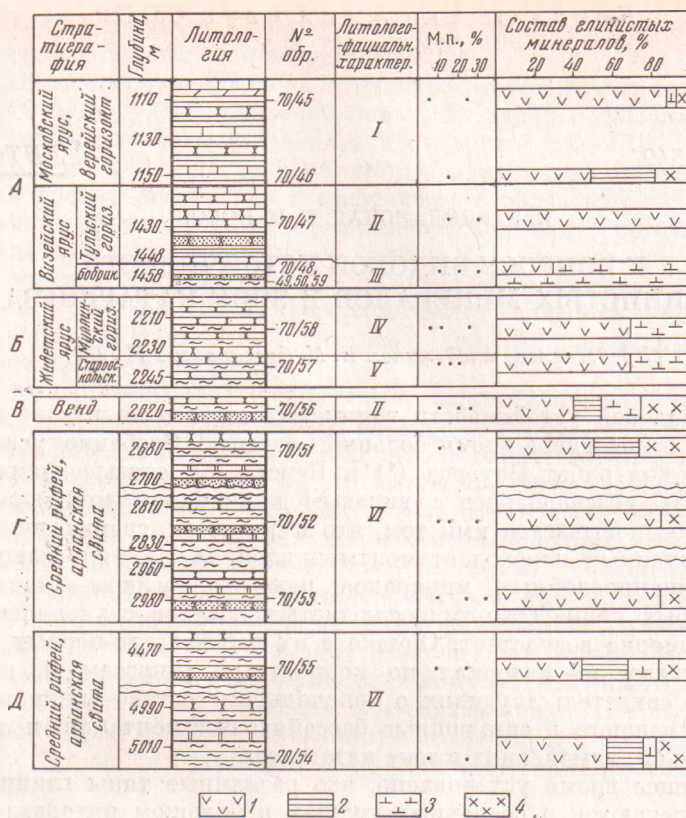 Стра-
тигра-
фия
Глубина,
м
Литоло-
гия
№
обр.
Литолого-
фациальн.
характер.
М.п., %
10 20 30
Состав глинистых
минералов, %
20 40 60 80
А
Московский
ярус,
Верейский
горизонт
1110
1130
1150
70/45
70/46
I
Визейский
ярус
Тульский
гориз.
1430
1448
70/47
II
Бобрик.
1458
70/48
49,50,59
III
Б
Живетский
ярус
гориз.
2210
2230
70/58
IV
Староос-
кольск.
2245
70/57
V
В
Венд
2020
70/56
II
Г
Средний рифей,
арланская
свита
2680
2700
2810
2830
2860
70/51
70/52
70/53
VI
Д
Средний рифей,
арланская
свита
4470
4990
5010
70/55
70/54
VI
1
2
3
4